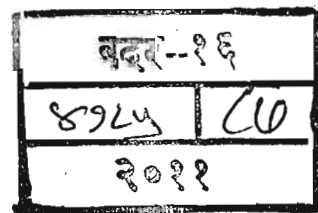 वदर--१६
४१८५ | ८७
२०११